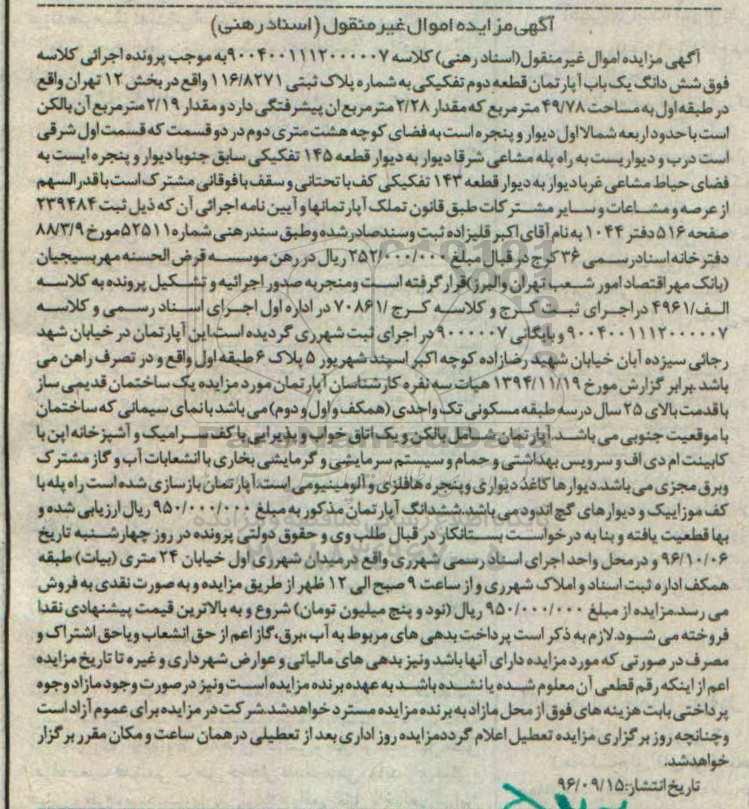 آگهی مزایده اموال غیر منقول (اسناد رهنی)
آگهی مزایده اموال غیر منقول(اسناد رهنی) کلاسه ۹۰۰۴۰۰۱۱۱۲۰۰۰۰۰۷به موجب پرونده اجرائی کلاسه
فوق شش دانگ یک باب آپارتمان قطعه دوم تفکیکی به شماره پلاک ثبتی ۱۱۶/۸۲۷۱ واقع در بخش ۱۲ تهران واقع
در طبقه اول به مساحت ۴۹/۷۸ متر مربع که مقدار ۲/۲۸ متر مربع ان پیشرفتگی دارد و مقدار ۲/۱۹ مترمربع آن بالکن
است با حدود اربعه شمالا اول دیوار و پنجره است به فضای کوچه هشت متری دوم در دو قسمت که قسمت اول شرقی
است درب و دیواریست به راه پله مشاعی شرقا دیوار به دیوار قطعه ۱۴۵ تفکیکی سابق جنوبا دیوار و پنجره ایست به
فضای حیاط مشاعی غربا دیوار به دیوار قطعه ۱۴۳ تفکیکی کف با تحتانی و سقف با فوقانی مشترک است با قدرالسهم
از عرصه و مشاعات و سایر مشترکات طبق قانون تملک آپارتمانها و آیین نامه اجرائی آن که ذیل ثبت ۲۳۹۴۸۴
صفحه ۵۱۶ دفتر ۱۰۴۴ به نام آقای اکبر قلیزاده ثبت وسند صادر شده وطبق سند رهنی شماره ۵۲۵۱۱مورخ ۸۸/۳/۹
دفتر خانه اسناد رسمی ۳۶ کرج در قبال مبلغ ۲۵۲/۰۰۰/۰۰۰ ریال در رهن موسسه قرض الحسنه مهر بسیجیان
(بانک مهر اقتصاد امور شعب تهران والبرز)قرار گرفته است ومنجر به صدور اجرائیه و تشکیل پرونده به کلاسه
الف/۴۹۶۱ در اجرای ثبت کرج و کلاسه کرج /۷۰۸۶۱ در اداره اول اجرای اسناد رسمی و کلاسه
۹۰۰۴۰۰۱۱۱۲۰۰۰۰۰۷ و بایگانی ۹۰۰۰۰۰۷ در اجرای ثبت شهرری گردیده است.این آپارتمان در خیابان شهد
رجائی سیزده آبان خیابان شهید رضازاده کوچه اکبر اسپند شهریور ۵ پلاک ۶ طبقه اول واقع و در تصرف راهن می
باشد .برابر گزارش مورخ ۱۳۹۴/۱۱/۱۹ هیات سه نفره کارشناسان آپارتمان مورد مزایده یک ساختمان قدیمی ساز
با قدمت بالای ۲۵ سال در سه طبقه مسکونی تک واحدی (همکف و اول و دوم) می باشد با نمای سیمانی که ساختمان
با موقعیت جنوبی می باشد. آپارتمان شامل بالکن و یک اتاق خواب و پذیرایی با کف سرامیک و آشپزخانه اپن با
کابینت ام دی اف و سرویس بهداشتی و حمام و سیستم سرمایشی و گرمایشی بخاری با انشعابات آب و گاز مشترک
وبرق مجزی می باشد. دیوارها کاغذ دیواری و پنجره ها فلزی و آلومینیومی است. آپارتمان بازسازی شده است راه پله با
کف موزاییک و دیوارهای گچ اندود می باشد.ششدانگ آپارتمان مذکور به مبلغ ۹۵۰/۰۰۰/۰۰۰ ریال ارزیابی شده و
بها قطعیت یافته و بنا به درخواست بستانکار در قبال طلب وی و حقوق دولتی پرونده در روز چهارشنبه تاریخ
۹۶/۱۰/۰۶ و در محل واحد اجرای اسناد رسمی شهرری واقع در میدان شهرری اول خیابان ۲۴ متری (بیات) طبقه
همکف اداره ثبت اسناد و املاک شهرری و از ساعت ۹ صبح الی ۱۲ ظهر از طریق مزایده و به صورت نقدی به فروش
می رسد.مزایده از مبلغ ۹۵۰/۰۰۰/۰۰۰ ریال (نود و پنج میلیون تومان) شروع و به بالاترین قیمت پیشنهادی نقدا
فروخته می شود.لازم به ذکر است پرداخت بدهی های مربوط به آب،برق،گاز اعم از حق انشعاب ویاحق اشتراک و
مصرف در صورتی که مورد مزایده دارای آنها باشد ونیز بدهی های مالیاتی و عوارض شهرداری و غیره تا تاریخ مزایده
اعم از اینکه رقم قطعی آن معلوم شده یا نشده باشد به عهده برنده مزایده است ونیز در صورت وجود مازاد وجوه
پرداختی بابت هزینه های فوق از محل مازاد به برنده مزایده مسترد خواهدشد.شرکت در مزایده برای عموم آزاد است
وچنانچه روز برگزاری مزایده تعطیل اعلام گردد مزایده روز اداری بعد از تعطیلی در همان ساعت و مکان مقرر برگزار
خواهدشد.
تاریخ انتشار:۹۶/۰۹/۱۵